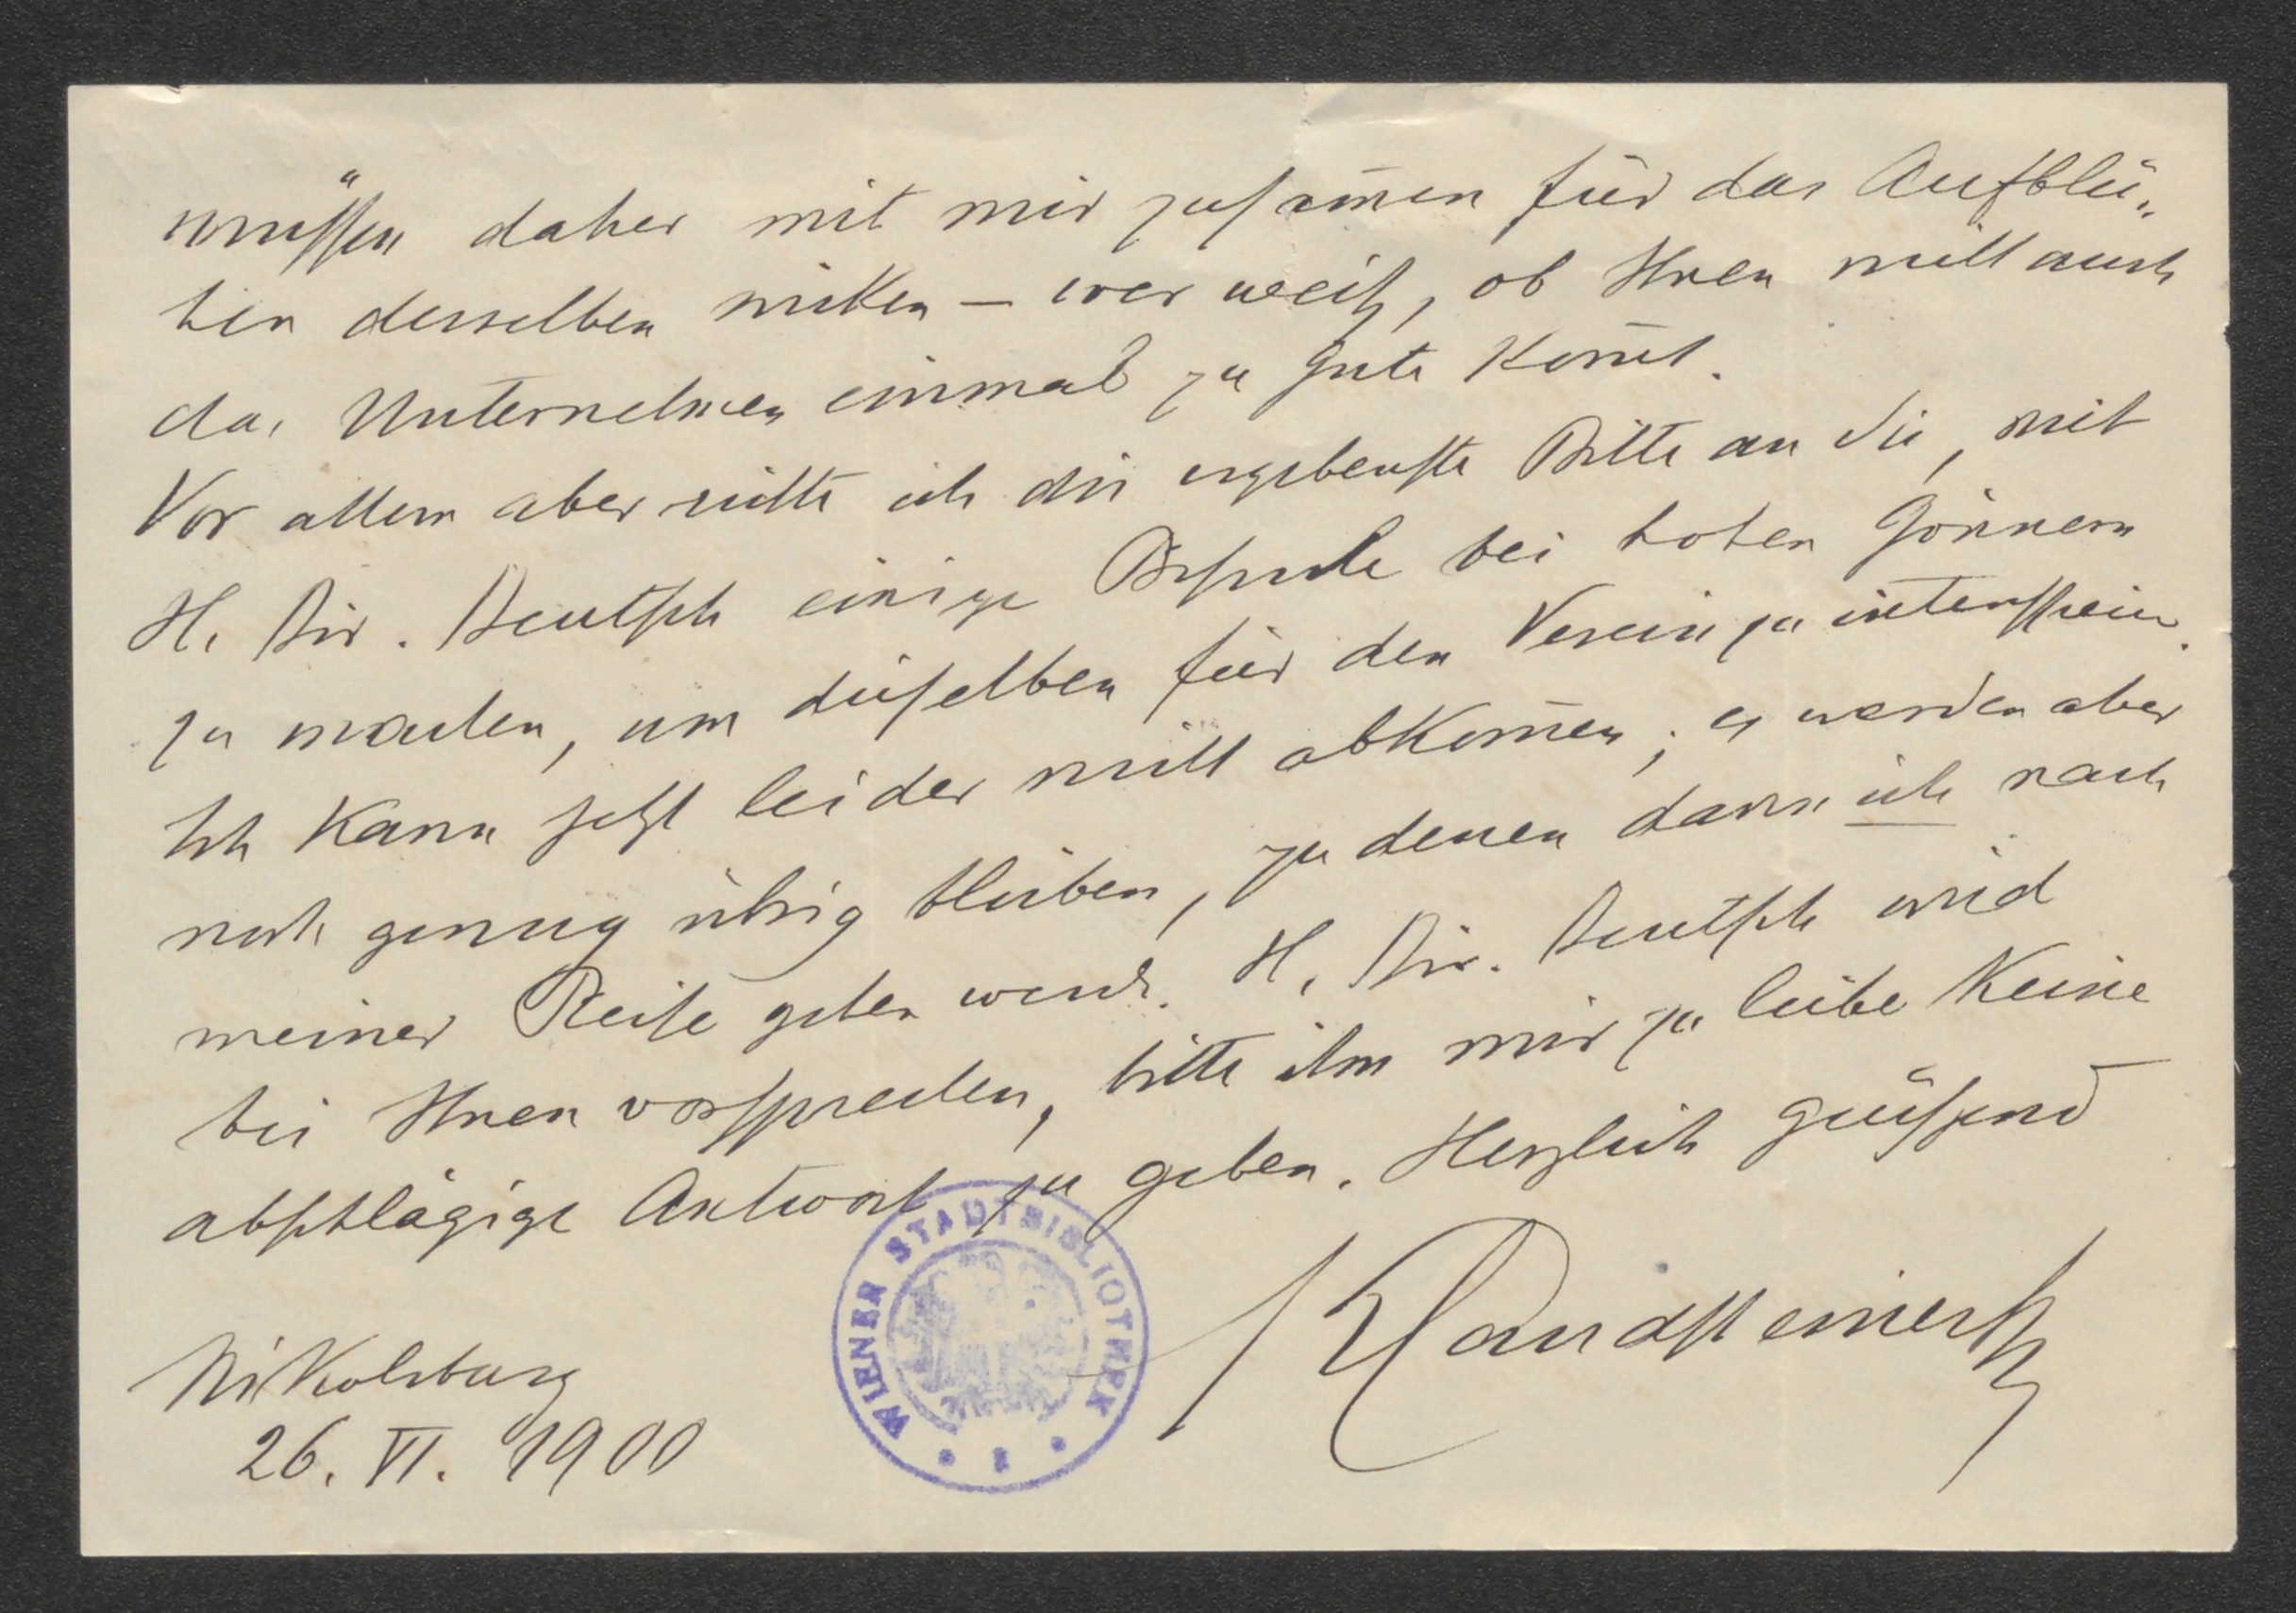 müssen daher mit mir zusam̄en für das Aufblü-
hen desselben wirken – wer weiß, ob Ihnen nicht auch
das Unternehmen einmal zu Gute kom̄t.
Vor allem aber richte ich die ergebenste Bitte an Sie, mit
H. Dir. Deutsch einige Besuche bei hohen Gönnern
zu machen, um dieselben für den Verein zu interessieren.
Ich kann jetzt leider nicht abkom̄en; es werden aber
noch genug übrig bleiben, zu denen dann ich nach
meiner Reise gehen werde. H. Dir. Deutsch wird
bei Ihnen vorsprechen, bitte ihm mir zu liebe keine
abschlägige Antwort zu geben. Herzlich grüßend
KLandsteiner
Nikolsburg
26. VI. 1900
WIENER STADTBIBLIOTHEK